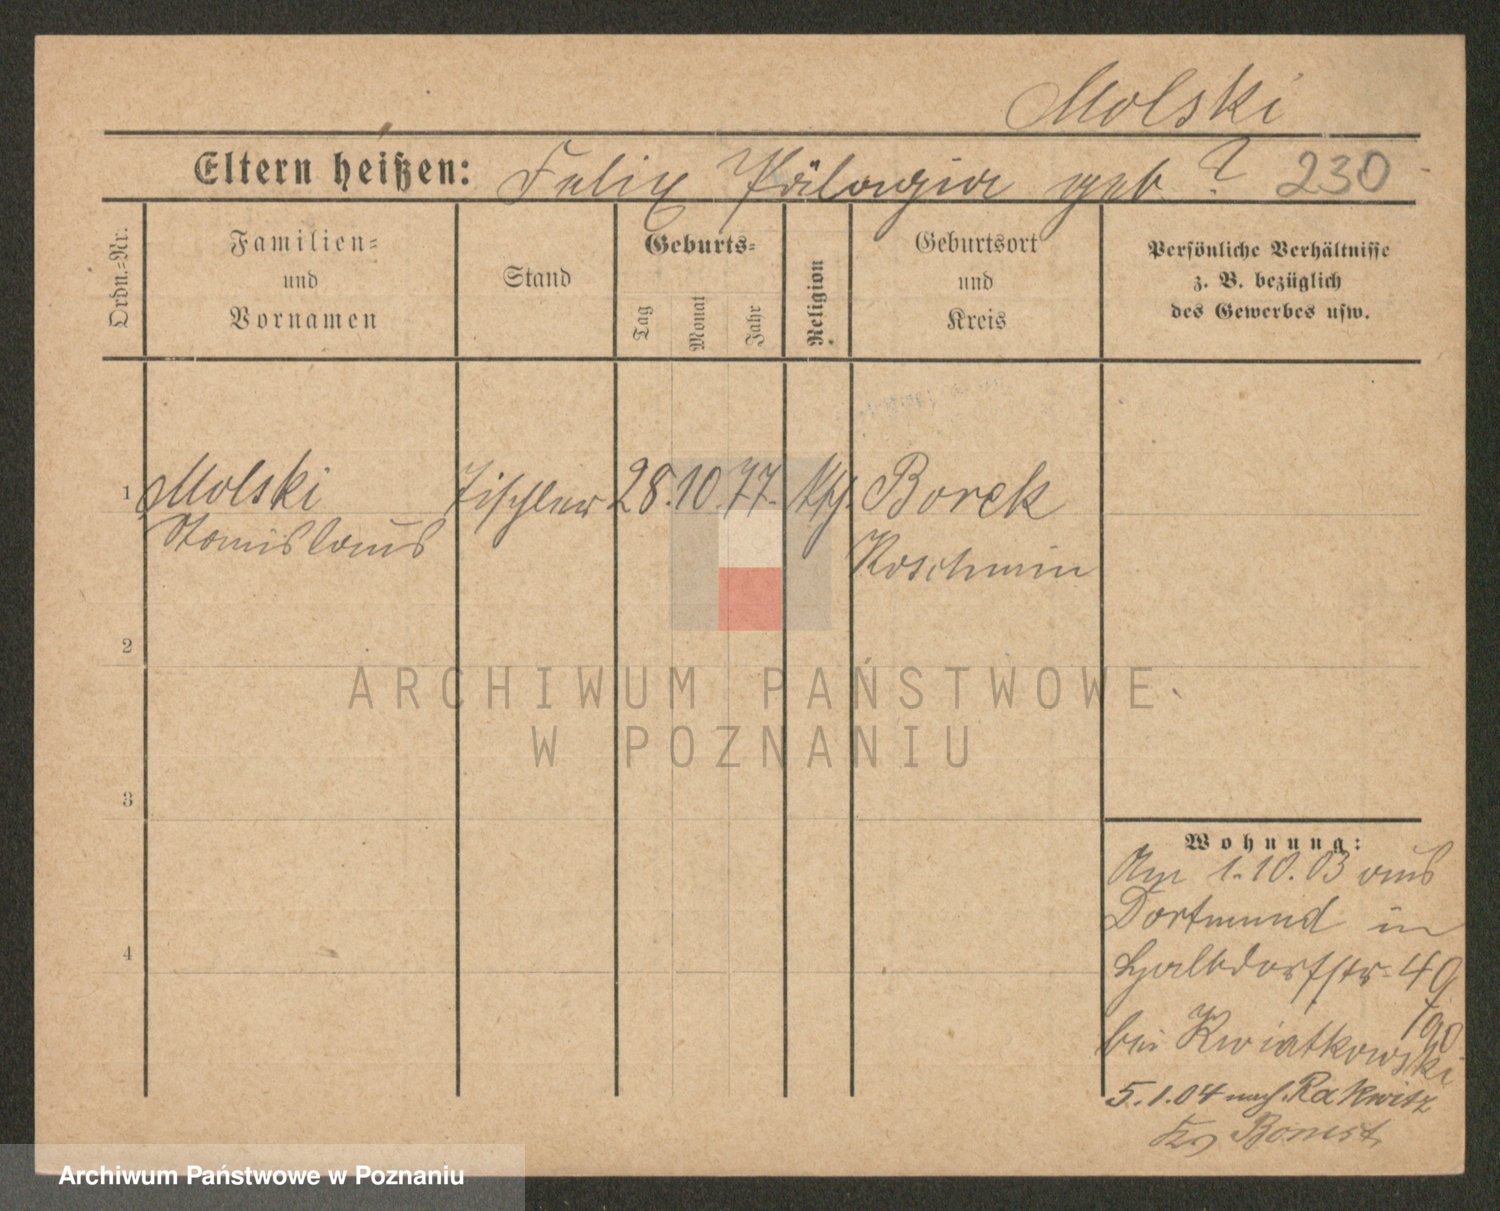 Molski
Eltern heißen: Felix Pälagia geb ? 230
Ordn.-Nr.
Familien-
und
Vornamen
Stand
Geburts-
Tag
Monat
Jahr
Religion
Geburtsort
und
Kreis
Persönliche Verhältnisse
z. B. bezüglich
des Gewerbes usw.
1 Molski Tischler 28. 10. 77. kth. Borek
Stanislaus Koschmin
2
3
4
ARCHIWUM PAŃSTWOWE
W POZNANIU
Wohnung:
Am 1.10.03 aus
Dortmund in
Halbdorfstr. 49
bei Kwiatkowski
5.1.04 nach Rakwitz
Kr Bomst.
Archiwum Państwowe w Poznaniu